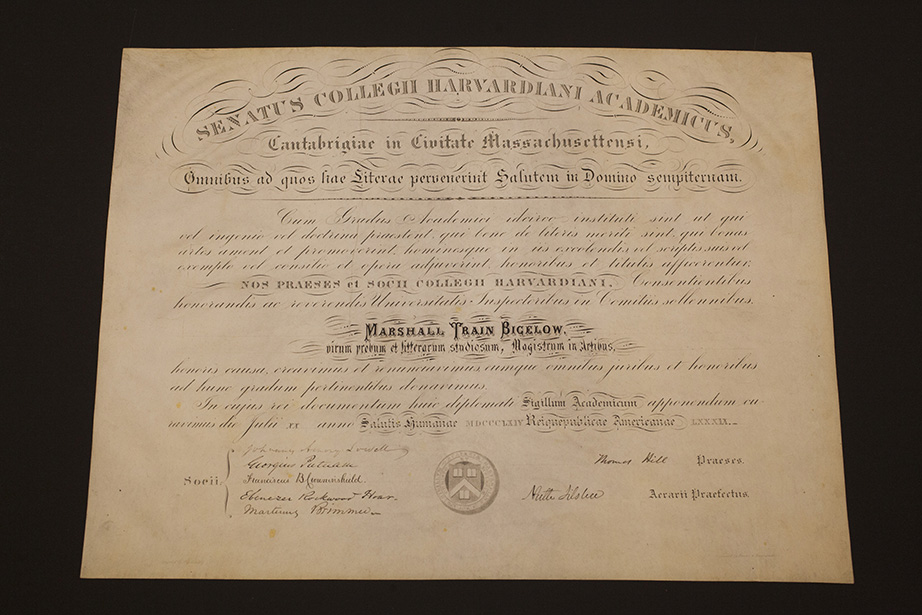 SENATUS COLLEGII HARVARDIANI ACADEMICUS,
Cantabrigiae in Civitate Massachusettensi,
Omnibus ad quos hae Literae pervenerint Salutem in Domino sempiternam.
Cum Gradus Academici idcirco instituti sint ut qui
vel ingenio vel doctrina praestent, qui bene de literis meriti sint, qui bonas
artes ament et promoverint, hominesque in iis excolendis vel scriptis suis vel
exemplo vel consilio et opera adjuverint, honoribus et titulis afficerentur;
NOS PRAESES et SOCII COLLEGII HARVARDIANI, Consentientibus
honorandis ac reverendis Universitatis Inspectoribus in Comitiis sollennibus,
MARSHALL TRAIN BIGELOW,
virum probum et litterarum studiosum, Magistrum in Artibus,
honoris causa, creavimus et renunciavimus eumque omnibus juribus et honoribus
ad hunc gradum pertinentibus donavimus.
In cujus rei documentum huic diplomati Sigillum Academicum apponendum cu-
ravimus die Julii XX anno Salutis Humanae MDCCCLXIV Reique publicae Americanae LXXXIX.
Johannes Amory Lowell
Georgius Putnam
Franciscus B Crowninshield
Socii, Ebenezer Rockwood Hoar
Martinus Brimmer
Thomas Hill Praeses.
Aerarii Praefectus.